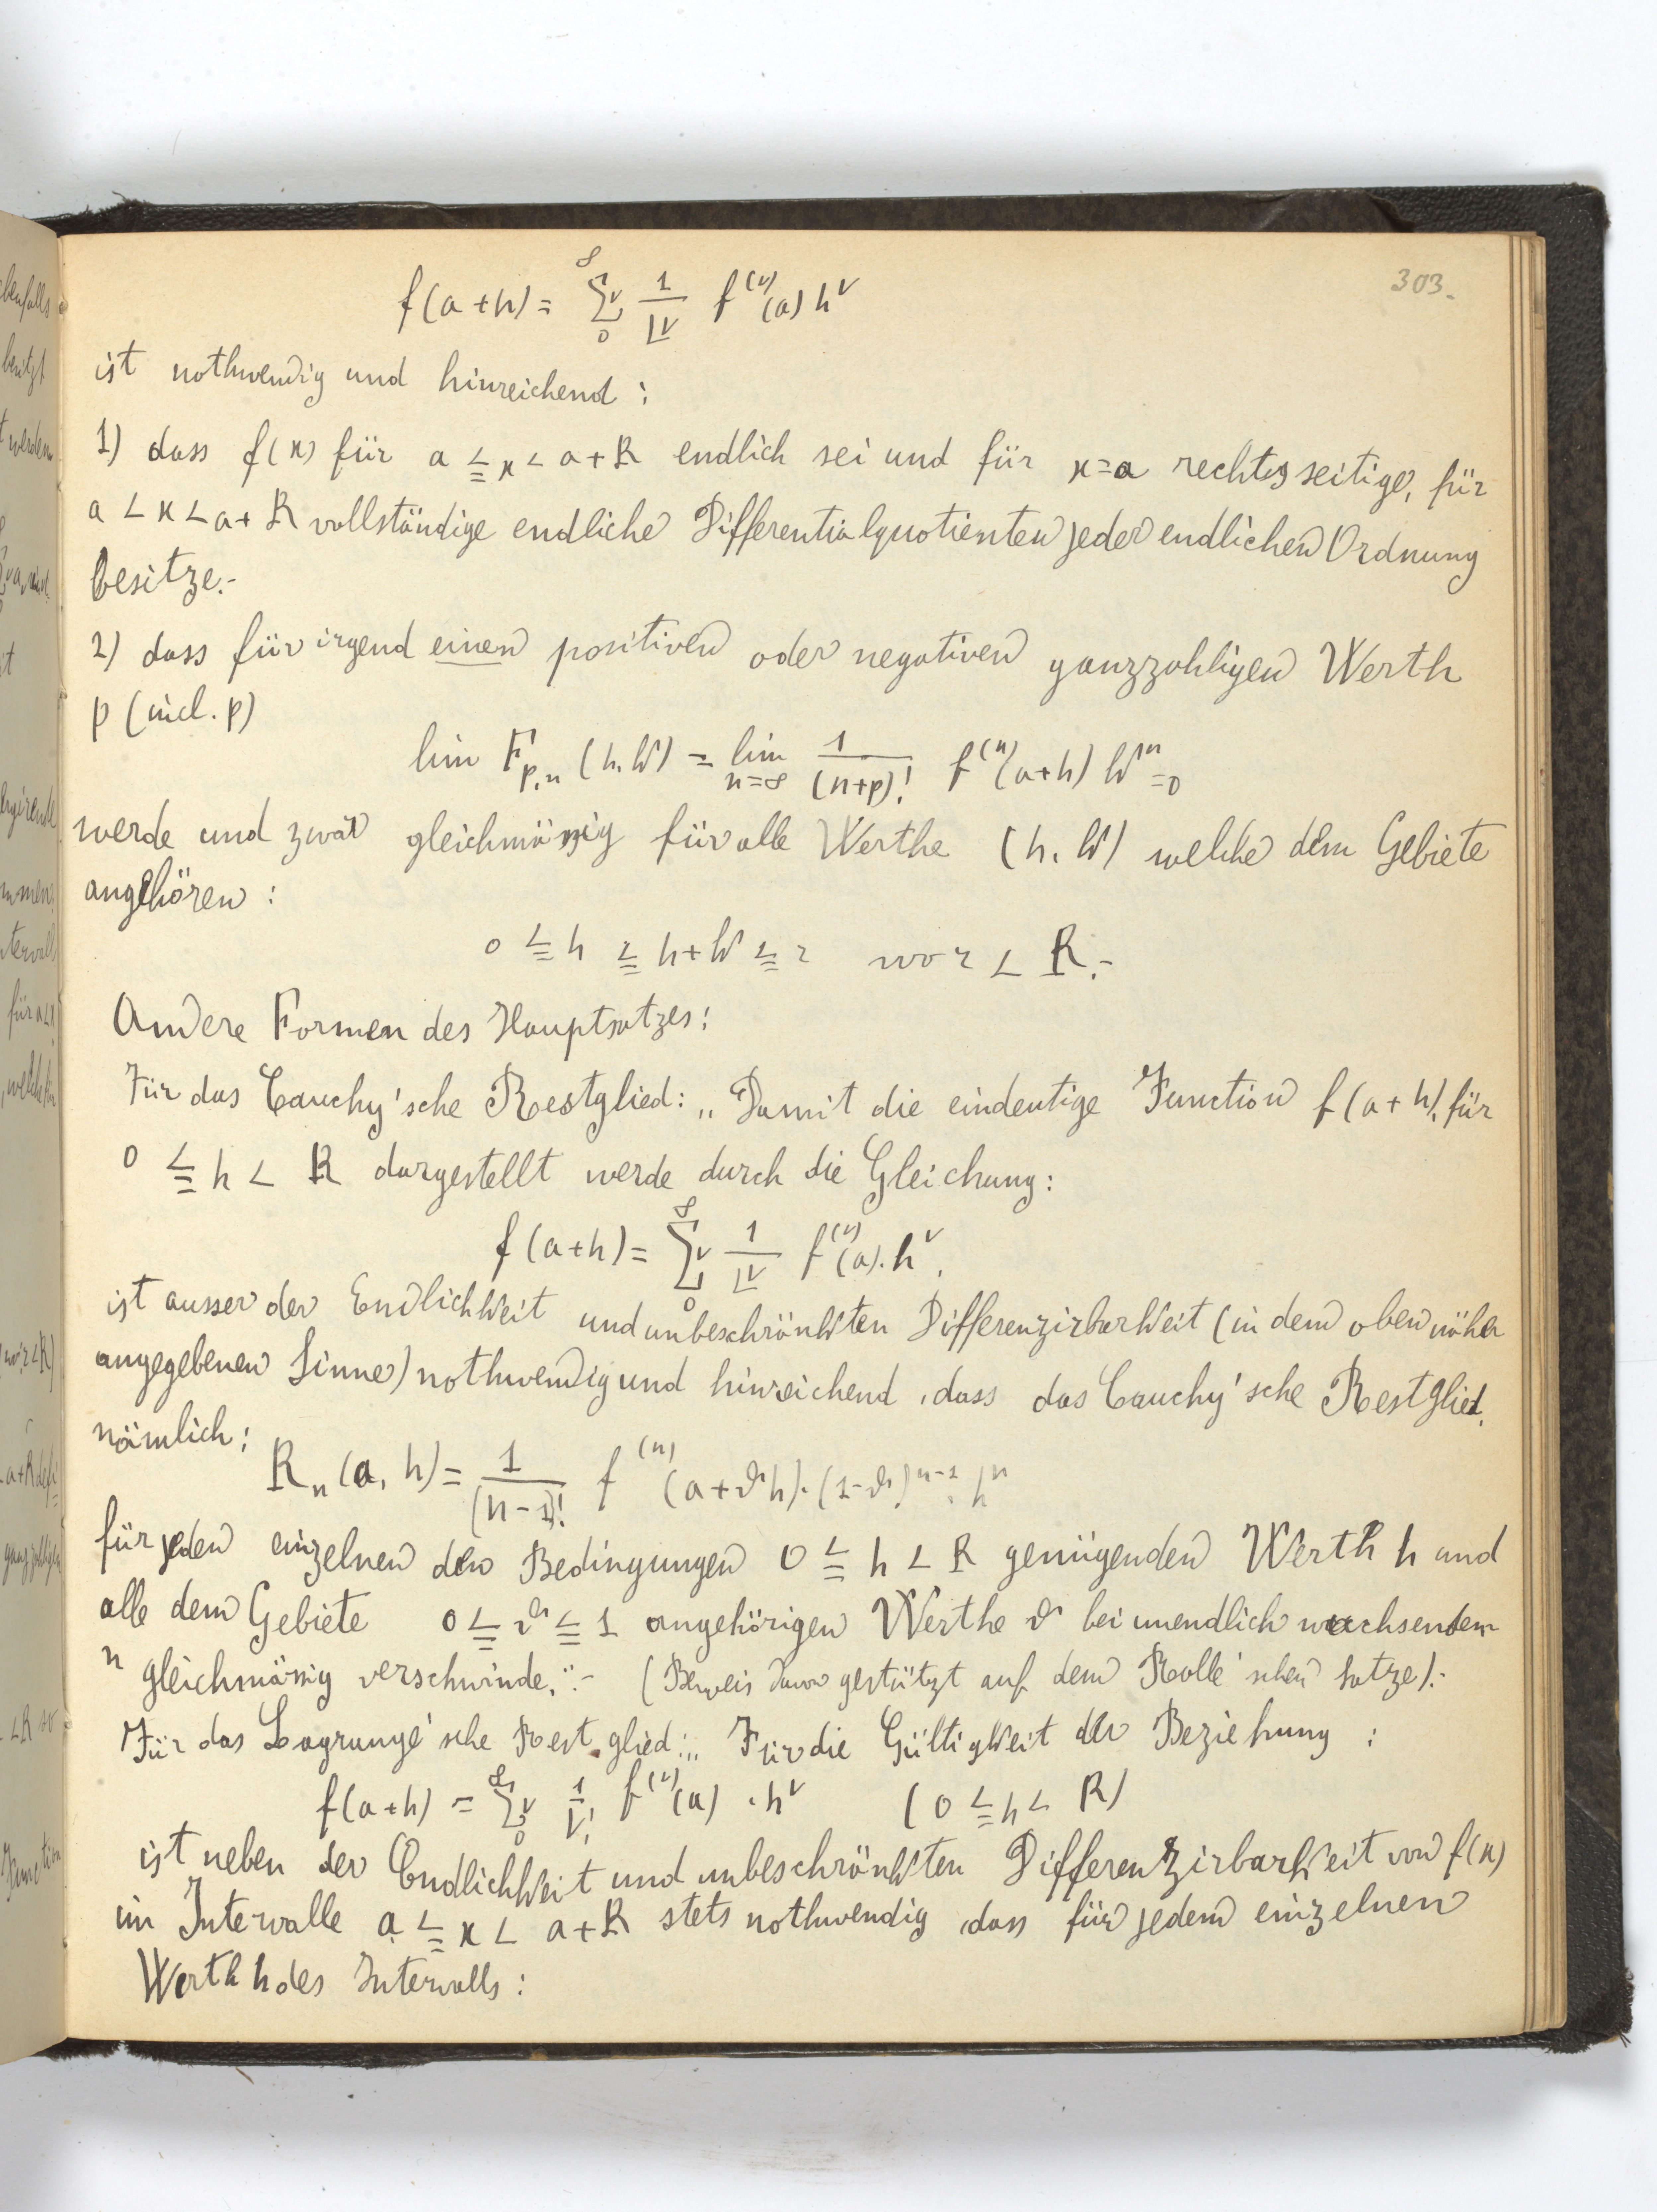 303.
f(a+h) = ∞ Σν 0 1/|ν f^(ν)(a) h^ν
ist nothwendig und hinreichend:
1) dass f(x) für a ≦ x < a+R endlich sei und für x=a rechtsseitige, für
a < x < a+R vollständige endliche Differentialquotienten jeder endlichen Ordnung
besitze.-
2) dass für irgend einen positiven oder negativen ganzzahligen Werth
p (incl. p)
lim F_{p.n} (h, k) = lim_{n=∞} 1/(n+p)! f^(n)(a+h) k^n = 0
werde und zwar gleichmässig für alle Werthe (h, k) welche dem Gebiete
angehören:
0 ≦ h ≦ h+k ≦ r wo r < R.-
Andere Formen des Hauptsatzes:
Für das Cauchy'sche Restglied: „Damit die eindeutige Function f(a+h), für
0 ≦ h < R dargestellt werde durch die Gleichung:
f(a+h) = ∞ Σν 0 1/|ν f^(ν)(a). h^ν,
ist ausser der Endlichkeit und unbeschränkten Differenzirbarkeit (in dem oben näher
angegebenen Sinne) nothwendig und hinreichend, dass das Cauchy'sche Restglied,
nämlich:
R_n (a, h) = 1/(n-1)! f^(n) (a+ϑh). (1-ϑ)^{n-1}. h^n
für jeden einzelnen den Bedingungen 0 ≦ h < R genügenden Werth h und
alle dem Gebiete 0 ≦ ϑ ≦ 1 angehörigen Werthe ϑ bei unendlich wachsendem
n gleichmässig verschwinde."- (Beweis davon gestützt auf dem Rolle'schen Satze).-
Für das Lagrange'sche Restglied: „Für die Gültigkeit der Beziehung:
f(a+h) = ∞ Σν 0 1/ν! f^(ν)(a) . h^ν (0 ≦ h < R)
ist neben der Endlichkeit und unbeschränkten Differenzirbarkeit von f(x)
im Intervalle a ≦ x < a+R stets nothwendig, dass für jedem einzelnen
Werth h des Intervalls: